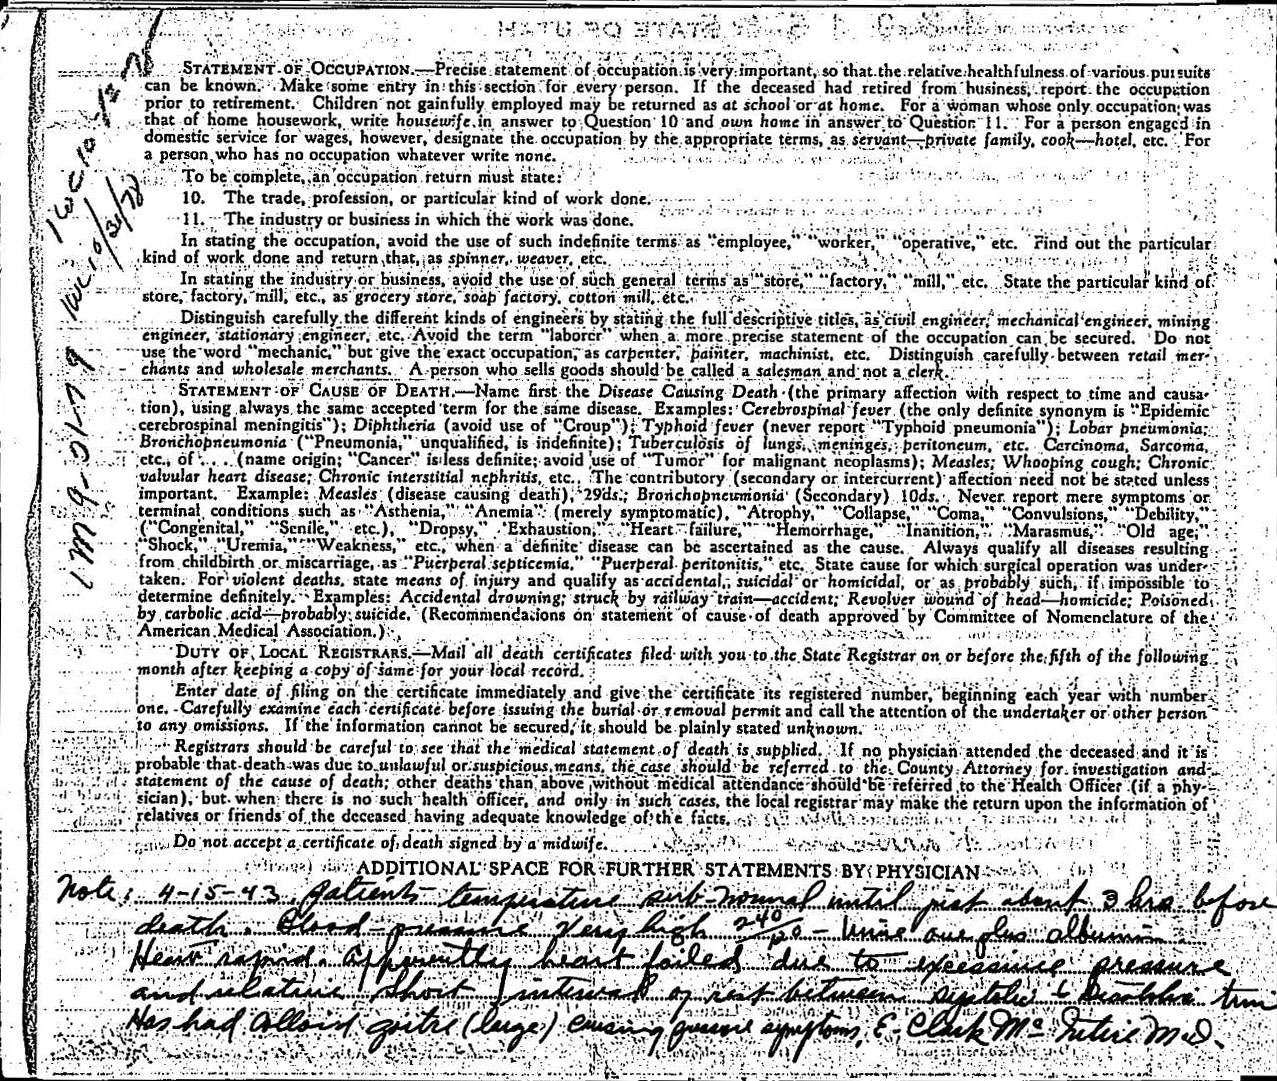 STATE OF UTAH
STATEMENT OF OCCUPATION.—Precise statement of occupation is very important, so that the relative healthfulness of various pursuits
can be known. Make some entry in this section for every person. If the deceased had retired from business, report the occupation
prior to retirement. Children not gainfully employed may be returned as at school or at home. For a woman whose only occupation was
that of home housework, write housewife in answer to Question 10 and own home in answer to Question 11. For a person engaged in
domestic service for wages, however, designate the occupation by the appropriate terms, as servant—private family, cook—hotel, etc. For
a person who has no occupation whatever write none.
To be complete, an occupation return must state:
10. The trade, profession, or particular kind of work done.
11. The industry or business in which the work was done.
In stating the occupation, avoid the use of such indefinite terms as "employee," "worker," "operative," etc. Find out the particular
kind of work done and return that, as spinner, weaver, etc.
In stating the industry or business, avoid the use of such general terms as "store," "factory," "mill," etc. State the particular kind of
store, factory, mill, etc., as grocery store, soap factory, cotton mill, etc.
Distinguish carefully the different kinds of engineers by stating the full descriptive titles, as civil engineer, mechanical engineer, mining
engineer, stationary engineer, etc. Avoid the term "laborer" when a more precise statement of the occupation can be secured. Do not
use the word "mechanic," but give the exact occupation, as carpenter, painter, machinist, etc. Distinguish carefully between retail mer-
chants and wholesale merchants. A person who sells goods should be called a salesman and not a clerk.
STATEMENT OF CAUSE OF DEATH.—Name first the Disease Causing Death (the primary affection with respect to time and causa-
tion), using always the same accepted term for the same disease. Examples: Cerebrospinal fever (the only definite synonym is "Epidemic
cerebrospinal meningitis"); Diphtheria (avoid use of "Croup"); Typhoid fever (never report "Typhoid pneumonia"); Lobar pneumonia;
Bronchopneumonia ("Pneumonia," unqualified, is indefinite); Tuberculosis of lungs, meninges, peritoneum, etc. Carcinoma, Sarcoma,
etc., of .... (name origin; "Cancer" is less definite; avoid use of "Tumor" for malignant neoplasms); Measles; Whooping cough; Chronic
valvular heart disease; Chronic interstitial nephritis, etc. The contributory (secondary or intercurrent) affection need not be stated unless
important. Example: Measles (disease causing death), 29ds.; Bronchopneumonia (Secondary) 10ds. Never report mere symptoms or
terminal conditions such as "Asthenia," "Anemia" (merely symptomatic), "Atrophy," "Collapse," "Coma," "Convulsions," "Debility,"
("Congenital," "Senile," etc.), "Dropsy," "Exhaustion," "Heart failure," "Hemorrhage," "Inanition," "Marasmus," "Old age,"
"Shock," "Uremia," "Weakness," etc., when a definite disease can be ascertained as the cause. Always qualify all diseases resulting
from childbirth or miscarriage, as "Puerperal septicemia," "Puerperal peritonitis," etc. State cause for which surgical operation was under-
taken. For violent deaths, state means of injury and qualify as accidental, suicidal or homicidal, or as probably such, if impossible to
determine definitely. Examples: Accidental drowning; struck by railway train—accident; Revolver wound of head—homicide; Poisoned
by carbolic acid—probably suicide. (Recommendations on statement of cause of death approved by Committee of Nomenclature of the
American Medical Association.)
DUTY OF LOCAL REGISTRARS.—Mail all death certificates filed with you to the State Registrar on or before the fifth of the following
month after keeping a copy of same for your local record.
Enter date of filing on the certificate immediately and give the certificate its registered number, beginning each year with number
one. Carefully examine each certificate before issuing the burial or removal permit and call the attention of the undertaker or other person
to any omissions. If the information cannot be secured, it should be plainly stated unknown.
Registrars should be careful to see that the medical statement of death is supplied. If no physician attended the deceased and it is
probable that death was due to unlawful or suspicious means, the case should be referred to the County Attorney for investigation and
statement of the cause of death; other deaths than above without medical attendance should be referred to the Health Officer (if a phy-
sician), but when there is no such health officer, and only in such cases, the local registrar may make the return upon the information of
relatives or friends of the deceased having adequate knowledge of the facts.
Do not accept a certificate of death signed by a midwife.
ADDITIONAL SPACE FOR FURTHER STATEMENTS BY PHYSICIAN
Note: 4-15-43. Patients temperature sub-normal until just about 3 hrs. before
death. Blood pressure very high 240/120 – Urine one plus albumin.
Heart rapid. Apparently heart failed due to excessive pressure
and relative short interval of rest between systolic & time
Has had colloid goitre (large) causing pressure symptoms. E. Clark McIntire M.D.